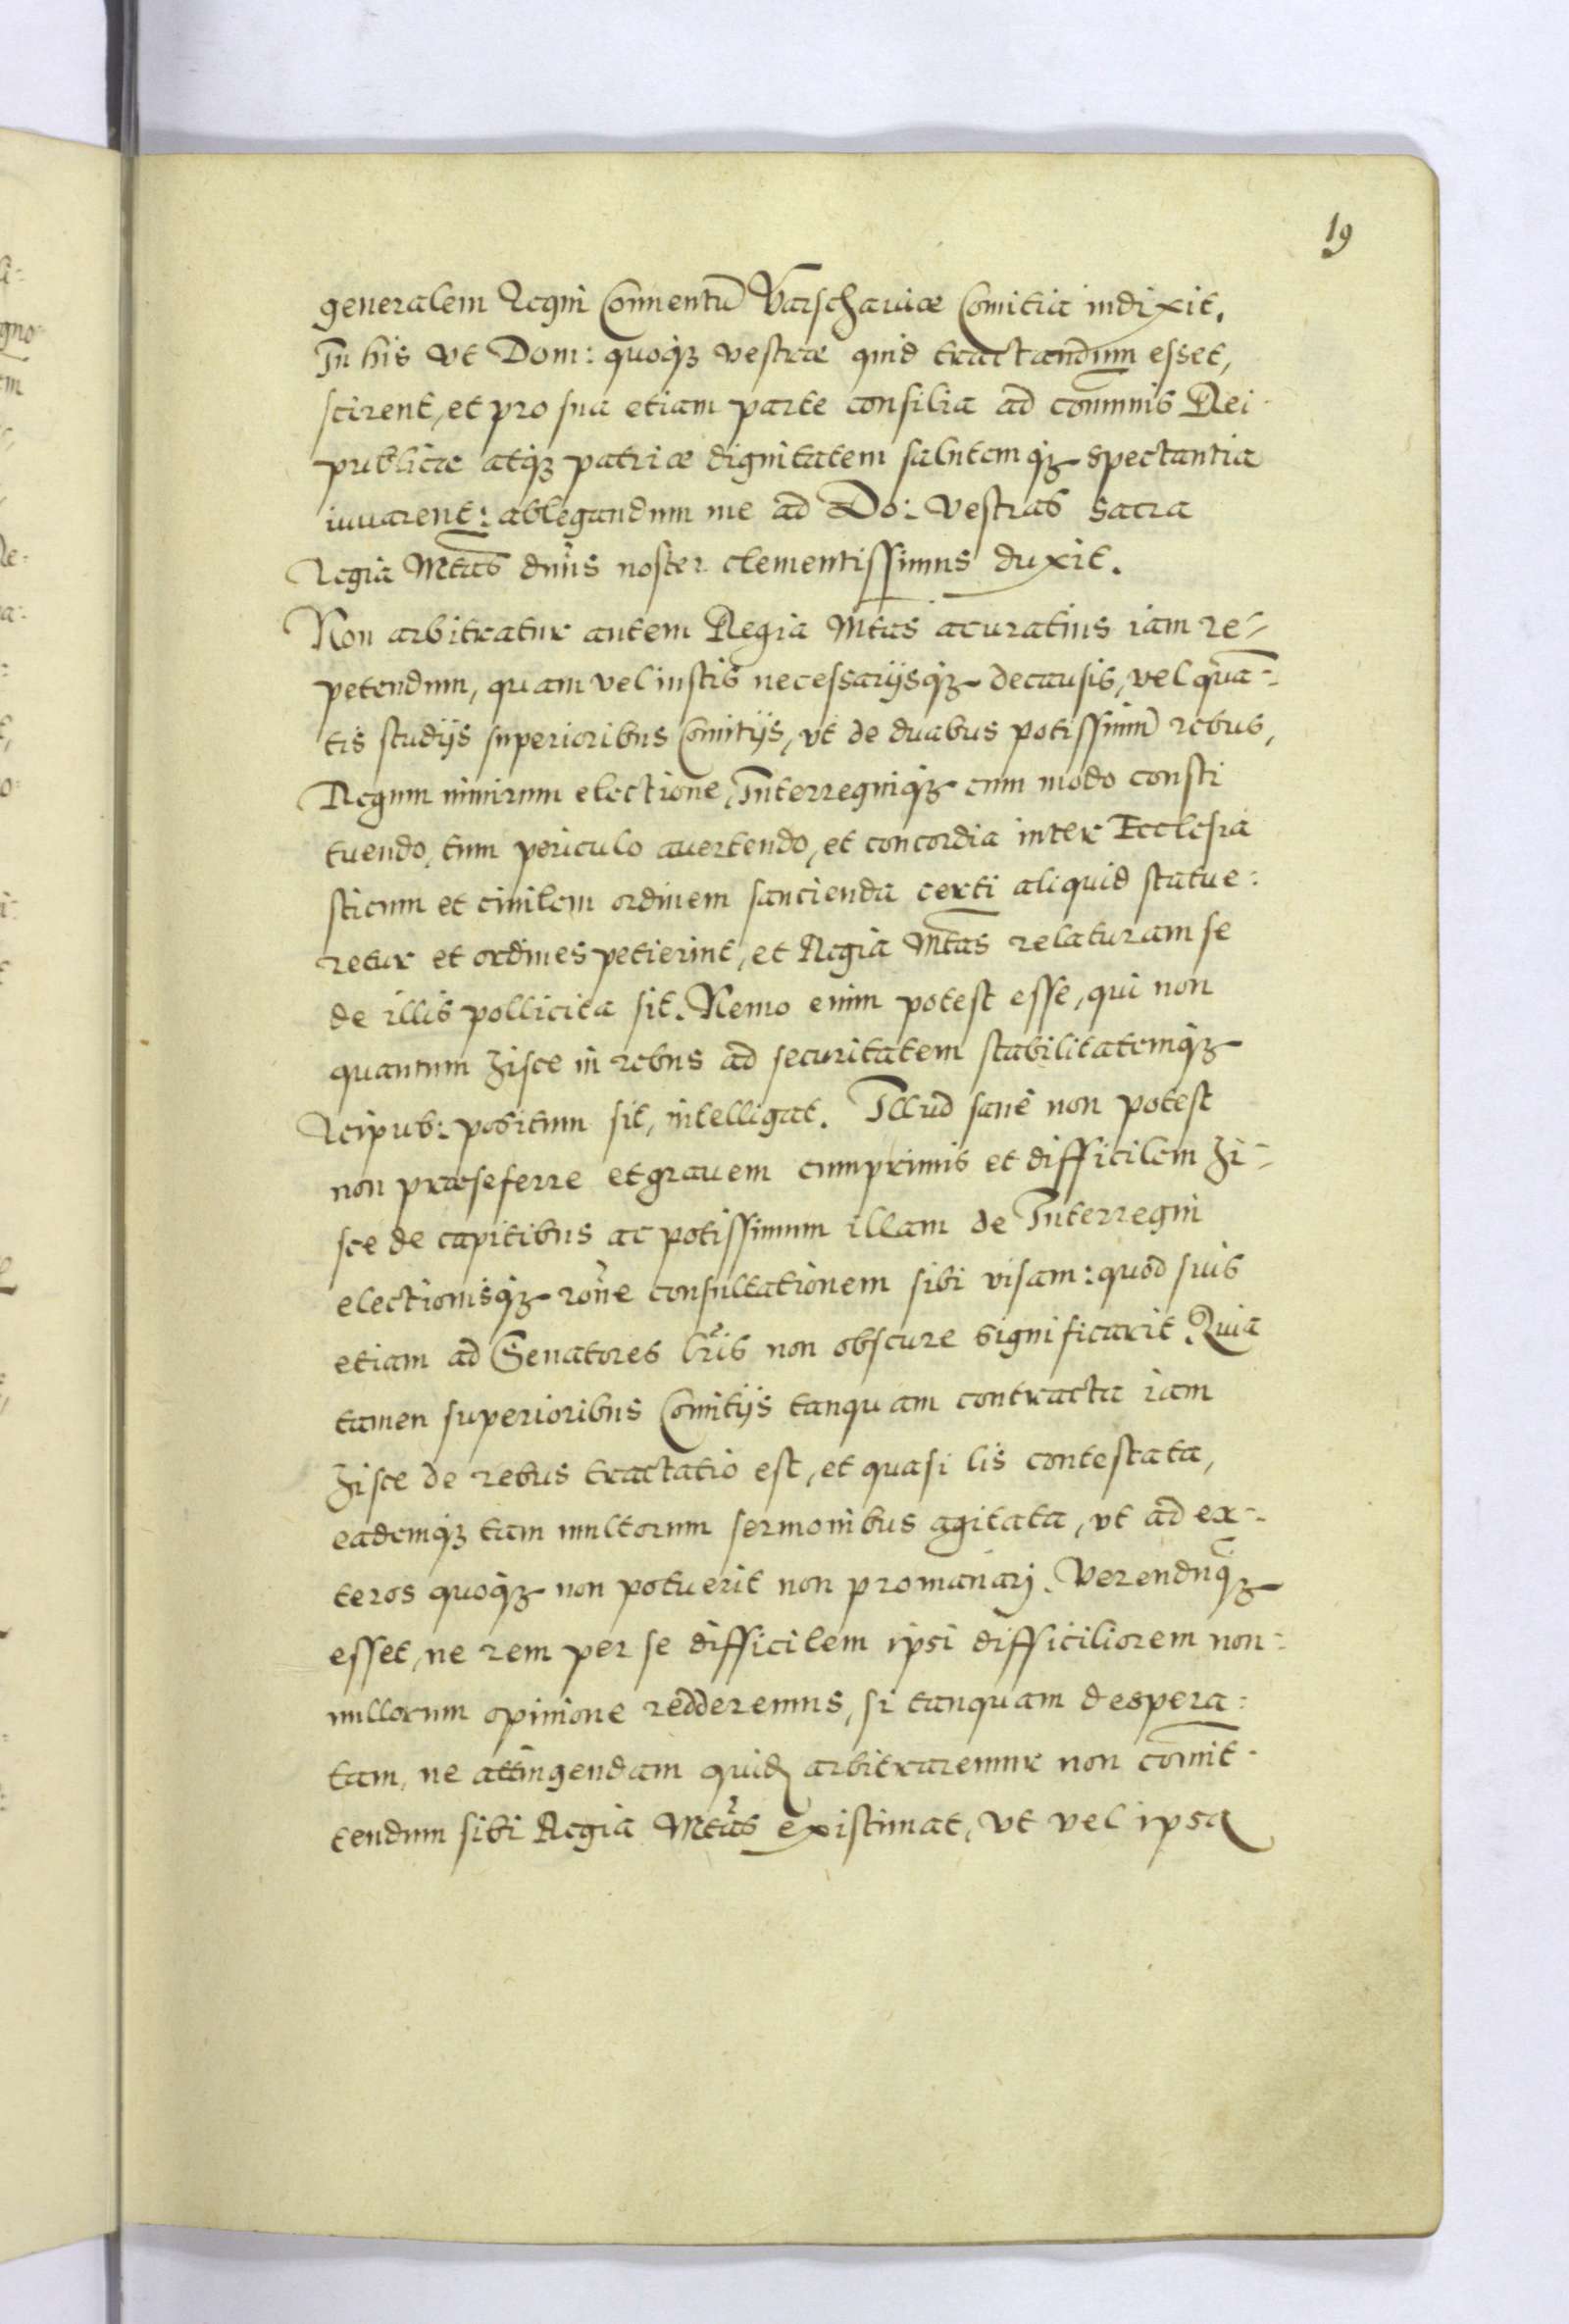 19
generalem Regni Conuentū Varschauiæ Comitia indixit.
In his vt Dom: quoq3 vestræ quid tractandum esset,
scirent, et pro sua etiam parte consilia ad com̄unis Rei
publicæ atq3 patriæ dignitatem salutemq3 spectantia
iuuarent: ablegandum me ad Do: vestras sacra
Regia Mtas dn̄us noster clementissimus duxit.
Non arbitratur autem Regia Mtas acuratius iam re-
petendum, quam vel iustis necessarijsq3 decausis, vel quā-
tis studijs superioribus Comitijs, vt de duabus potissimū rebus,
Regum nimirum electione, Interregniq3 cum modo consti
tuendo, tum periculo auertendo, et concordia inter Ecclesia
sticum et ciuilem ordinem sancienda certi aliquid statue:
retur et ordines petierint, et Regia Mtas relaturam se
de illis pollicita sit. Nemo enim potest esse, qui non
quantum hisce in rebus ad securitatem stabilitatemq3
Reipub: positum sit, intelligat. Illud sanè non potest
non præseferre et grauem cumprimis et difficilem hi-
sce de capitibus ac potissimum illam de Interregni
electionisq3 rōne consultationem sibi visam: quod suis
etiam ad Senatores lr̄is non obscure significarit. Quia
tamen superioribus Comitijs tanquam contracta iam
hisce de rebus tractatio est, et quasi lis contestata,
eademq3 tam multorum sermonibus agitata, vt ad ex-
teros quoq3 non potuerit non promanarj. Verendūq3
esset, ne rem per se difficilem ipsi difficiliorem non-
nullorum opinione redderemus, si tanquam despera:
tam, ne attingendam quidē arbitraremur non com̄it-
tendum sibi Regia Mtas existimat, vt vel ipsa